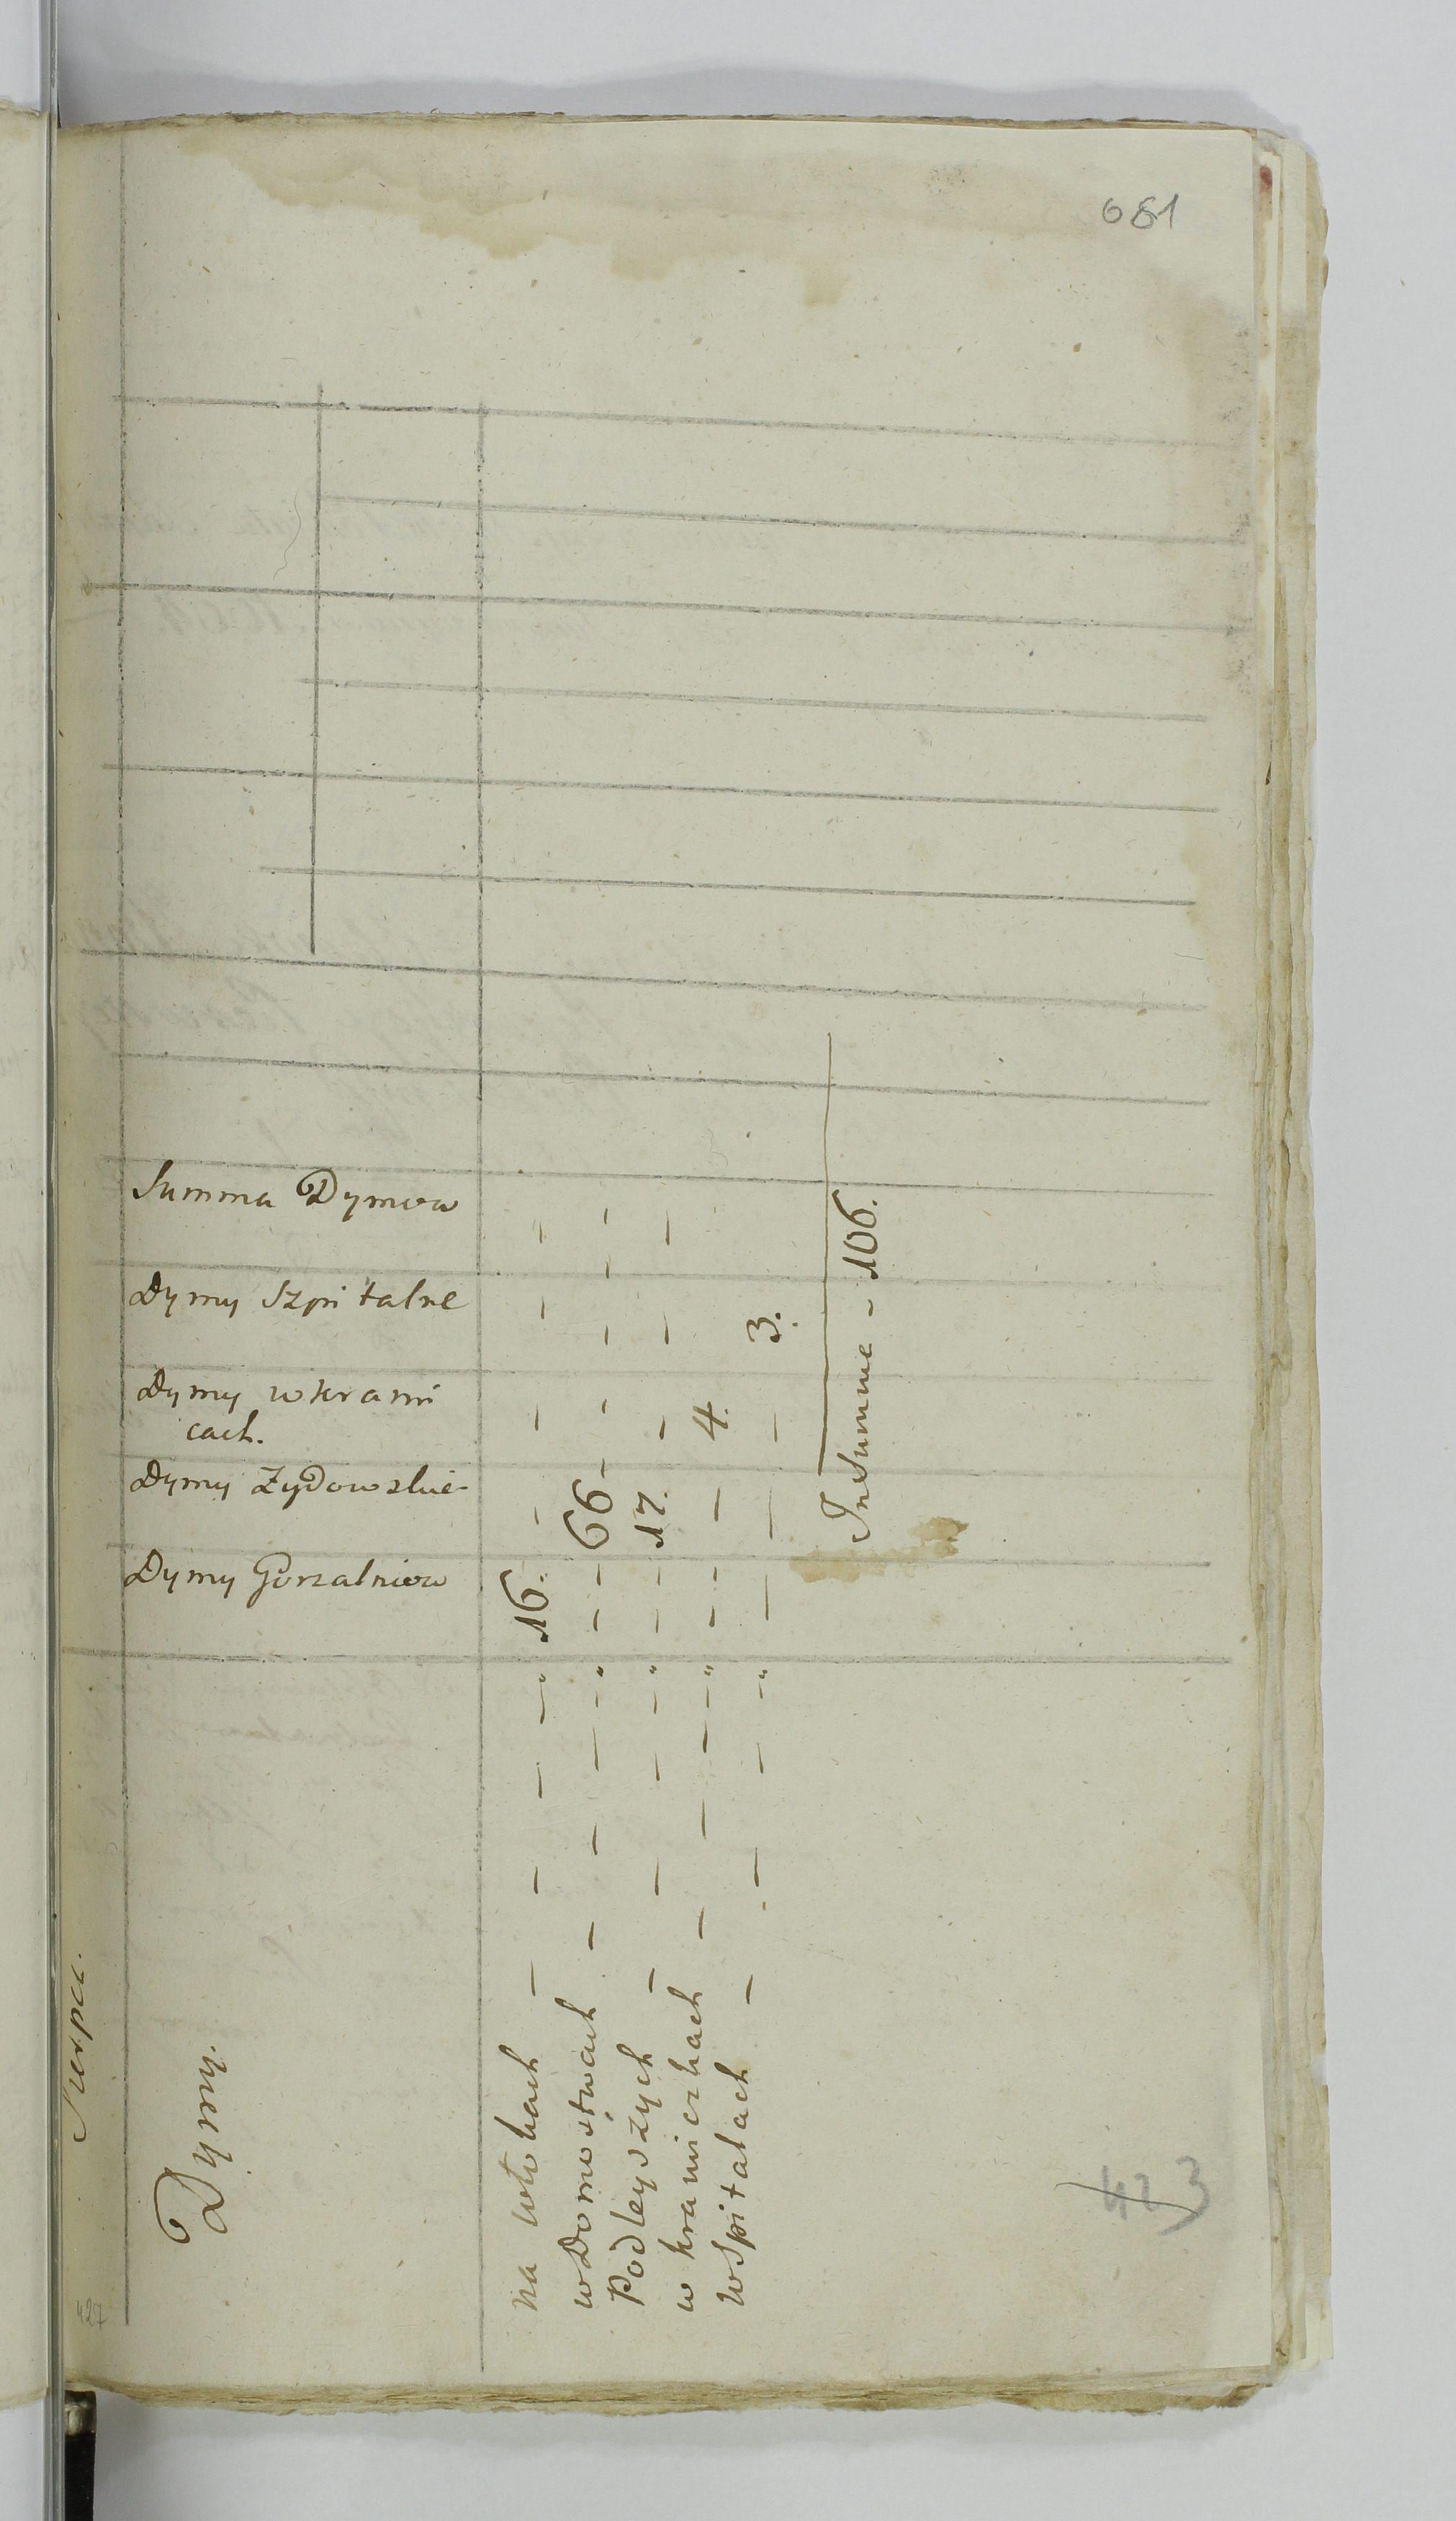 681
Dymy.
Dymy Gorzalniow
Dymy Żydowskie
Dymy w krami
cach.
Dymy Szpitalne
Summa Dymow
na — — — — " 16. — — — —
w Domostwach — — — — " — — 66 — — — — —
Podleyszych — — — — " — — 17. — — —
w kramiczkach — — — — " — — — 4.
w Spitalach — — — — " — — — 3.
In Summa - 106.
423
427